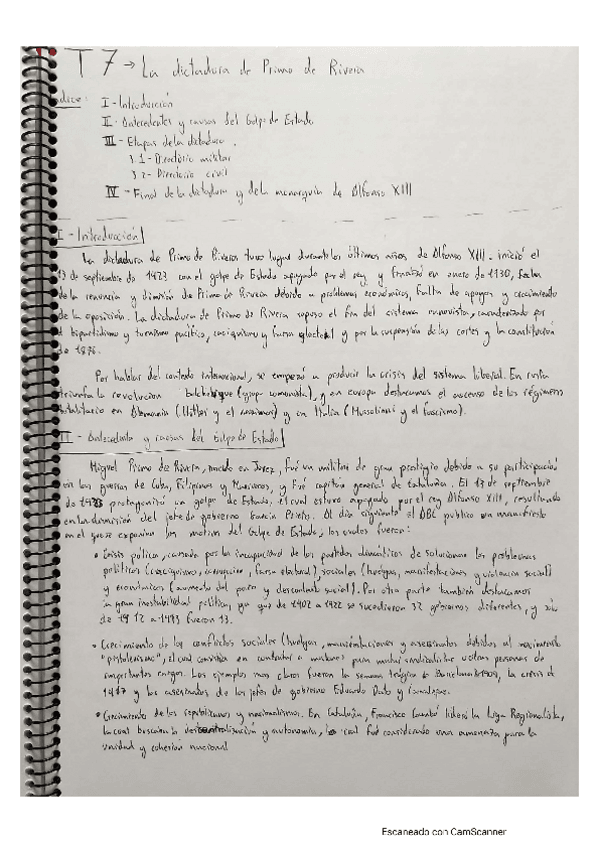 T 7 → La dictadura de Primo de Rivera
Índice: I - Introducción
II - Antecedentes y causas del Golpe de Estado
III - Etapas de la dictadura.
3.1 - Directorio militar
3.2 - Directorio civil
IV - Final de la dictadura y de la monarquía de Alfonso XIII
I - Introducción
La dictadura de Primo de Rivera tuvo lugar durante los últimos años de Alfonso XIII. inició el
13 de septiembre de 1923 con el golpe de Estado apoyado por el rey y finalizó en enero de 1930, fecha
de la renuncia y dimisión de Primo de Rivera debido a problemas económicos, falta de apoyos y crecimiento
de la oposición. La dictadura de Primo de Rivera supuso el fin del sistema canovista, caracterizado por
el bipartidismo y turnismo pacífico, caciquismo y farsa electoral y por la suspensión de las cortes y la constitución
de 1876.
Por hablar del contexto internacional, se empezó a producir la crisis del sistema liberal. En rusia
triunfa la revolucion bolchebique (grupo comunista), y en europa destacamos el ascenso de los régimenes
totalitario en Alemania (Hitler y el nazismo) y en Italia (Mussolini y el fascismo).
II - Antecedentes y causas del Golpe de Estado
Miguel Primo de Rivera, nacido en Jerez, fué un militar de gran prestigio debido a su participación
en las guerras de Cuba, Filipinas y Marruecos, y fué capitán general de Cataluña. El 13 de septiembre
de 1923 protagonizó un golpe de Estado, el cual estuvo apoyado por el rey Alfonso XIII, resultando
en la dimisión del jefe de gobierno García Prieto. Al día siguiente el ABC publicó un manifiesto
en el que se exponian los motivos del Golpe de Estado, los cuales fueron:
• Crisis política, causada por la incapacidad de los partidos dinásticos de solucionar los problemas
políticos (caciquismo, corrupción, farsa electoral), sociales (huelgas, manifestaciones y violencia social)
y económicos (aumento del paro y descontento social). Por otra parte también destacamos
la gran inestabilidad política, ya que de 1902 a 1922 se sucedieron 32 gobiernos diferentes, y
de 1912 a fueron 13.
• Crecimiento de los conflictos sociales (huelgas, manifestaciones y asesinatos debidos al movimiento
"pistolerismo", el cual consistía en contratar a matones para matar sindicalistas u otras personas de
importantes cargos. Los ejemplos mas claros fueron la semana trágica de Barcelona 1909, la crisis de
1917 y los asesinatos de los jefes de gobierno Eduardo Dato y Canalejas.
• Crecimiento de los republicanos y nacionalismos. En Cataluña, Francisco Cambó lideró la Liga Regionalista,
la cual buscaba la descentralización y autonomía, lo cual fué considerado una amenaza para la
unidad y cohesión nacional
Escaneado con CamScanner